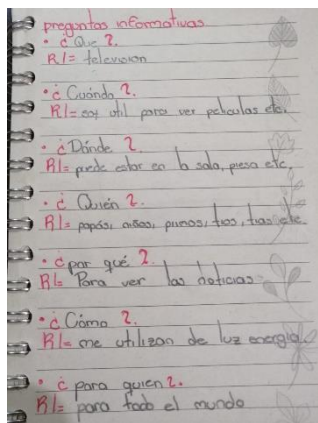 preguntas informativas
• ¿Que?.
R/= television
• ¿Cuándo?.
R/= es útil para ver peliculas etc.
• ¿Dónde?.
R/= puede estar en la sala, piesa etc.
• ¿Quién?.
R/= papás, niños, primos, tios, tias etc
• ¿por qué?.
R/= Para ver las noticias
• ¿Cómo?.
R/= me utilizan de luz energia.
• ¿para quien?.
R/= para todo el mundo